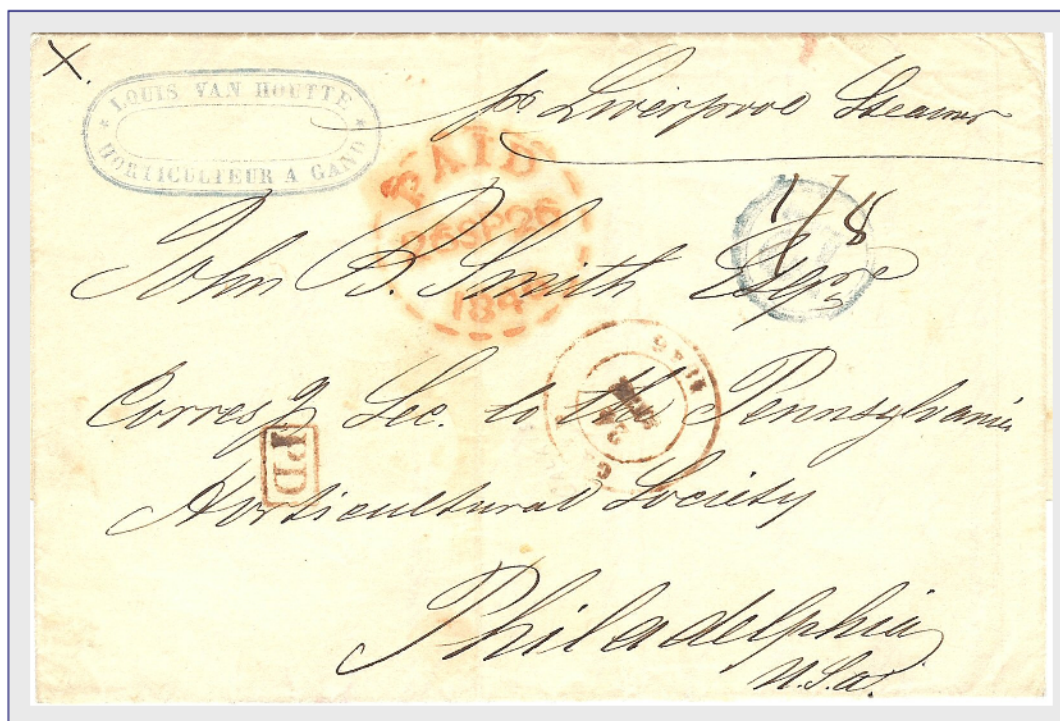 X.
LOUIS VAN HOUTTE
HORTICULTEUR A GAND
per Liverpool Steamer
PAID
26SP26
184
1/8
John B. Smith Esqre
Corresg Sec. to the Pennsylvania
PD
Horticultural Society
Philadelphia
U.S.a.